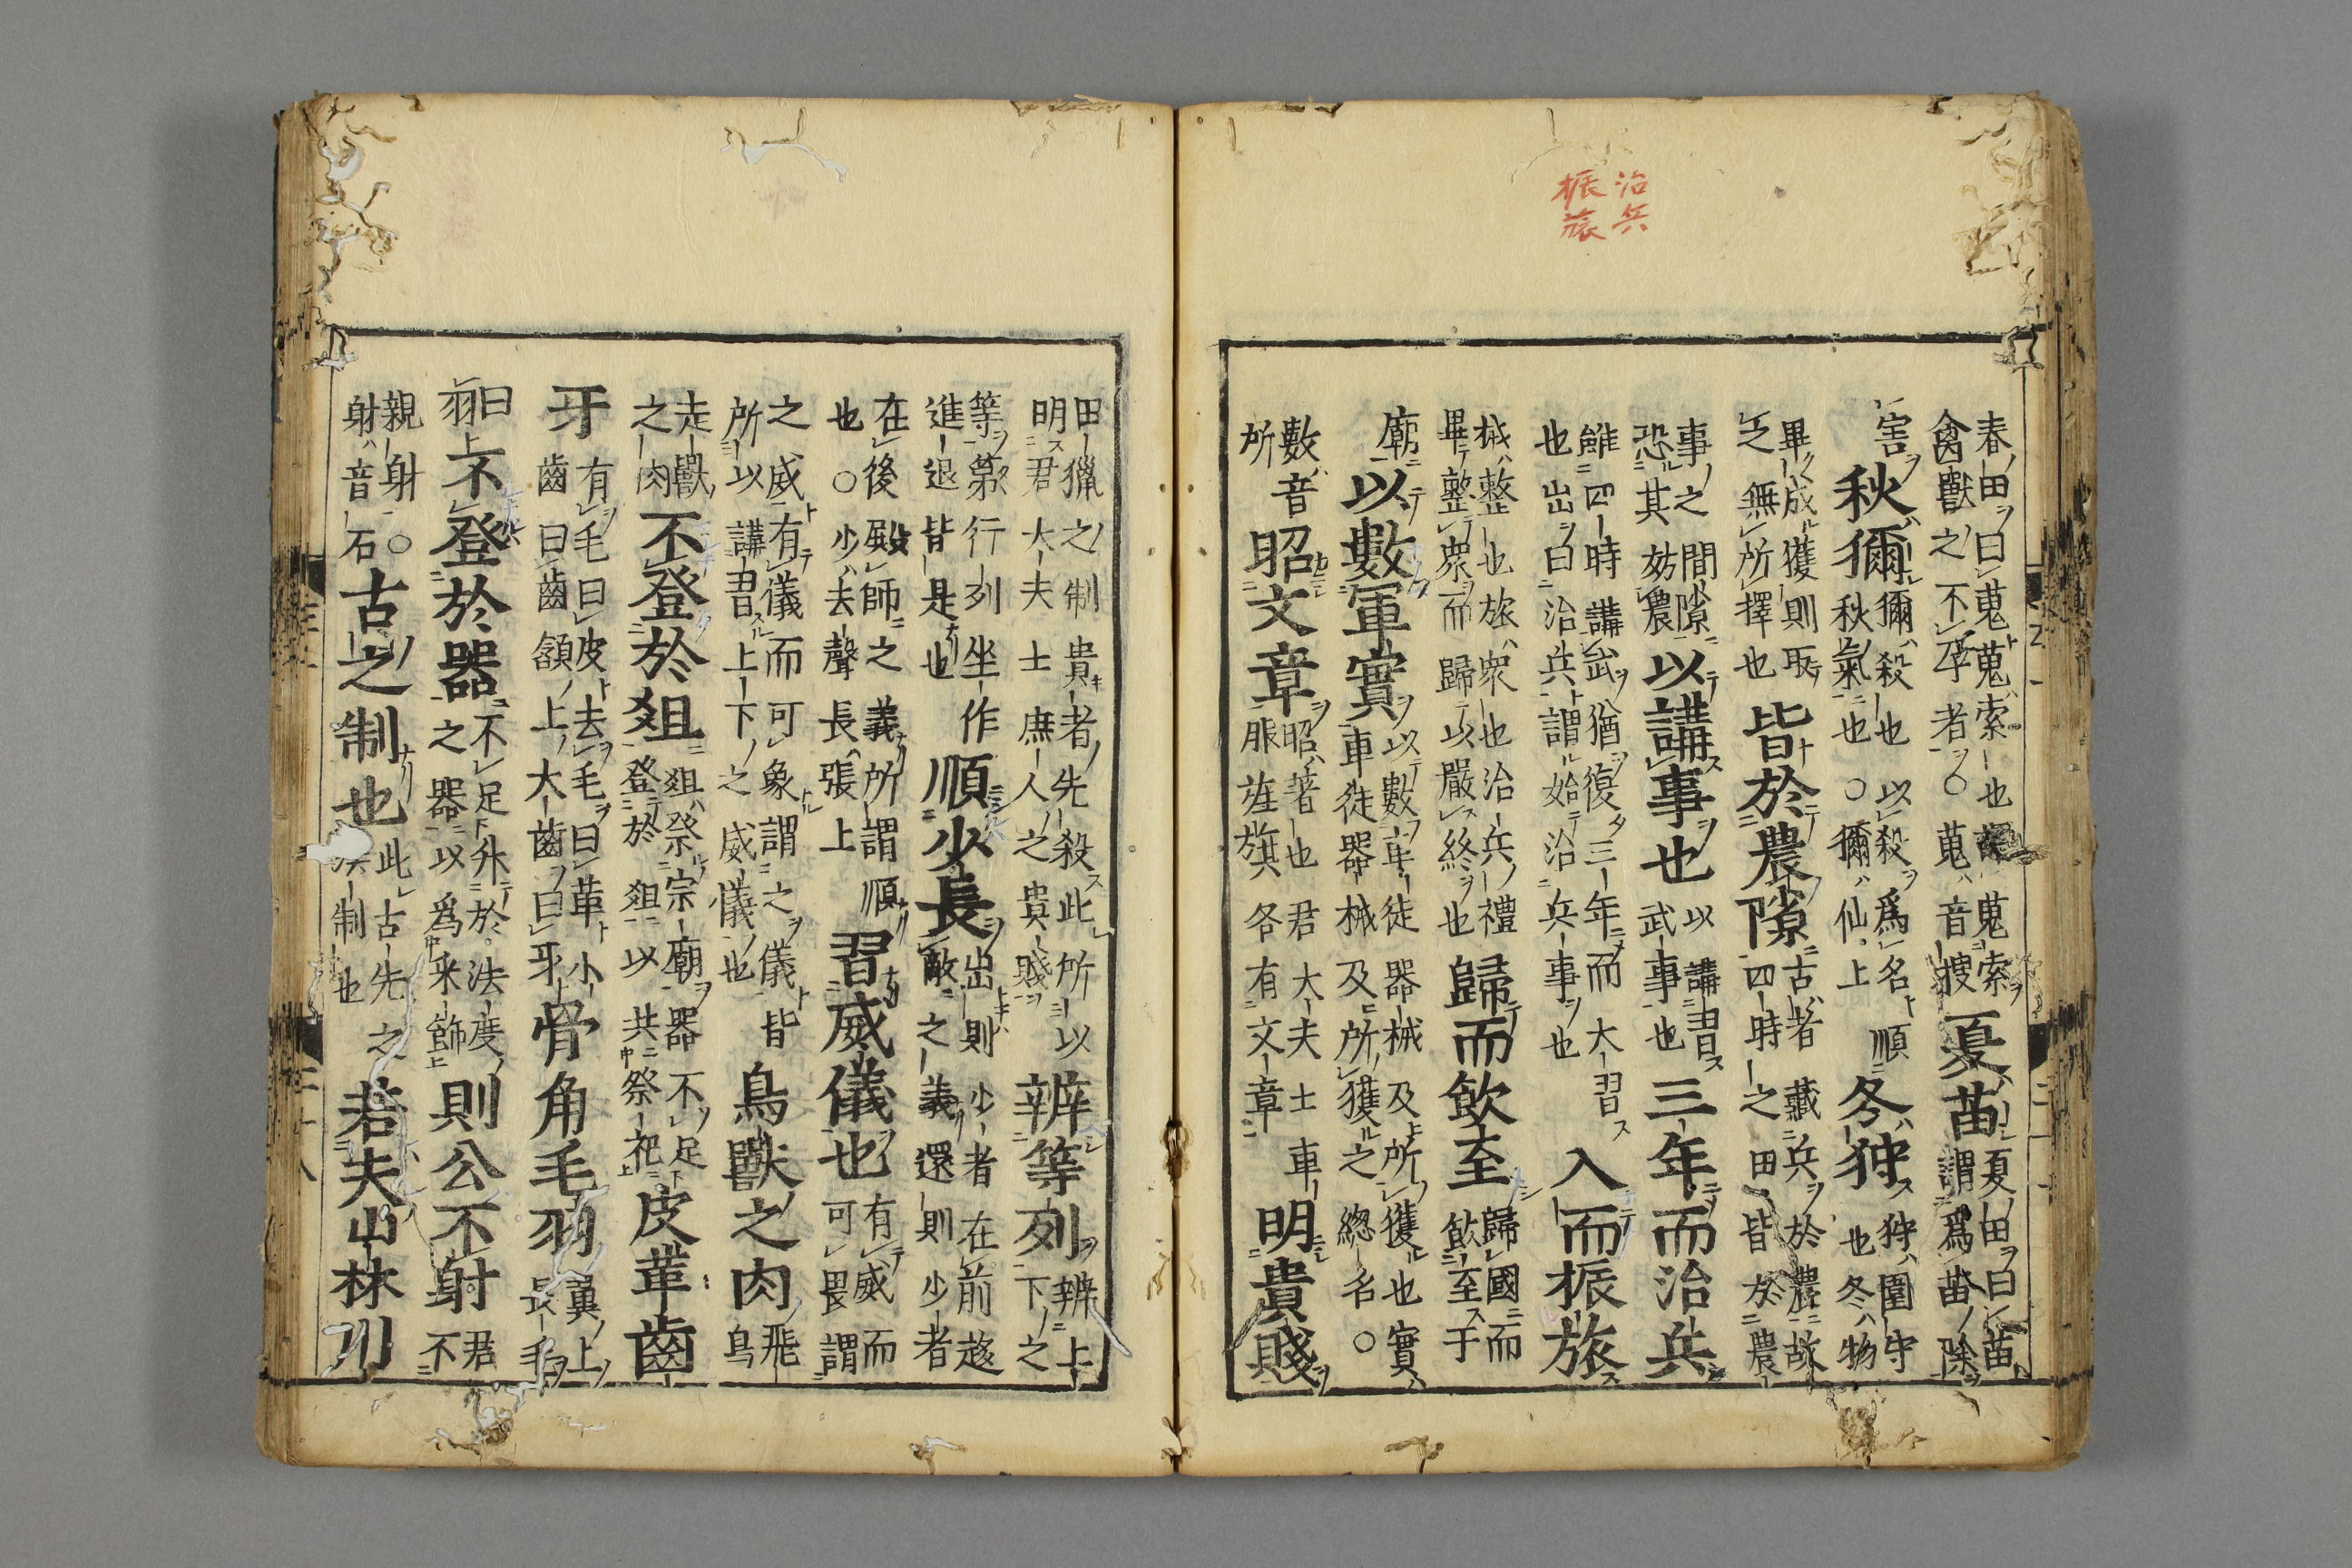 治兵
振旅
春田曰蒐蒐索也蒐索
禽獸之不孕者○蒐音搜
夏苗
夏田曰苗
謂爲苗除
害
秋獮
獮殺也以殺爲名順
秋氣也○獮仙上
冬狩
狩圍守
也冬物
畢成獲則取
之無所擇也
皆於農隙
古者藏兵於農故
四時之田皆於農
事之間隙
恐其妨農
以講事也
以講習
武事也
三年而治兵
雖四時講武猶復三年而大習
也出曰治兵謂始治兵事也
入而振旅
振整也旅衆也治兵禮
畢整衆而歸以嚴終也
歸而飲至
歸國而
飲至于
廟
以數軍實
以數車徒器械及所獲也實
車徒器械及所獲之緫名○
數音
所
昭文章
昭著也君大夫士車
服旌旗各有文章
明貴賤
田獵之制貴者先殺此所以
明君大夫士庶人之貴賤
辨等列
辨上
下之
等第行列坐作
進退皆是也
順少長
出則少者在前趍
敵之義還則少者
在後殿師之義所謂順
也○少去聲長張上
習威儀也
有威而
可畏謂
之威有儀而可象謂之儀皆
所以講習上下之威儀也
鳥獸之肉
飛
鳥
走獸
之肉
不登於俎
俎祭宗廟器不足
登於俎以共祭祀
皮革齒
牙
有毛曰皮去毛曰革小
齒曰齒頷上大齒曰牙
骨角毛羽
翼上
長毛
曰
羽
不登於器
不足升於法度
之器以爲采飾
則公不射
君
不
親射○
射音石
古之制也
此古先之
制也
若夫山林川